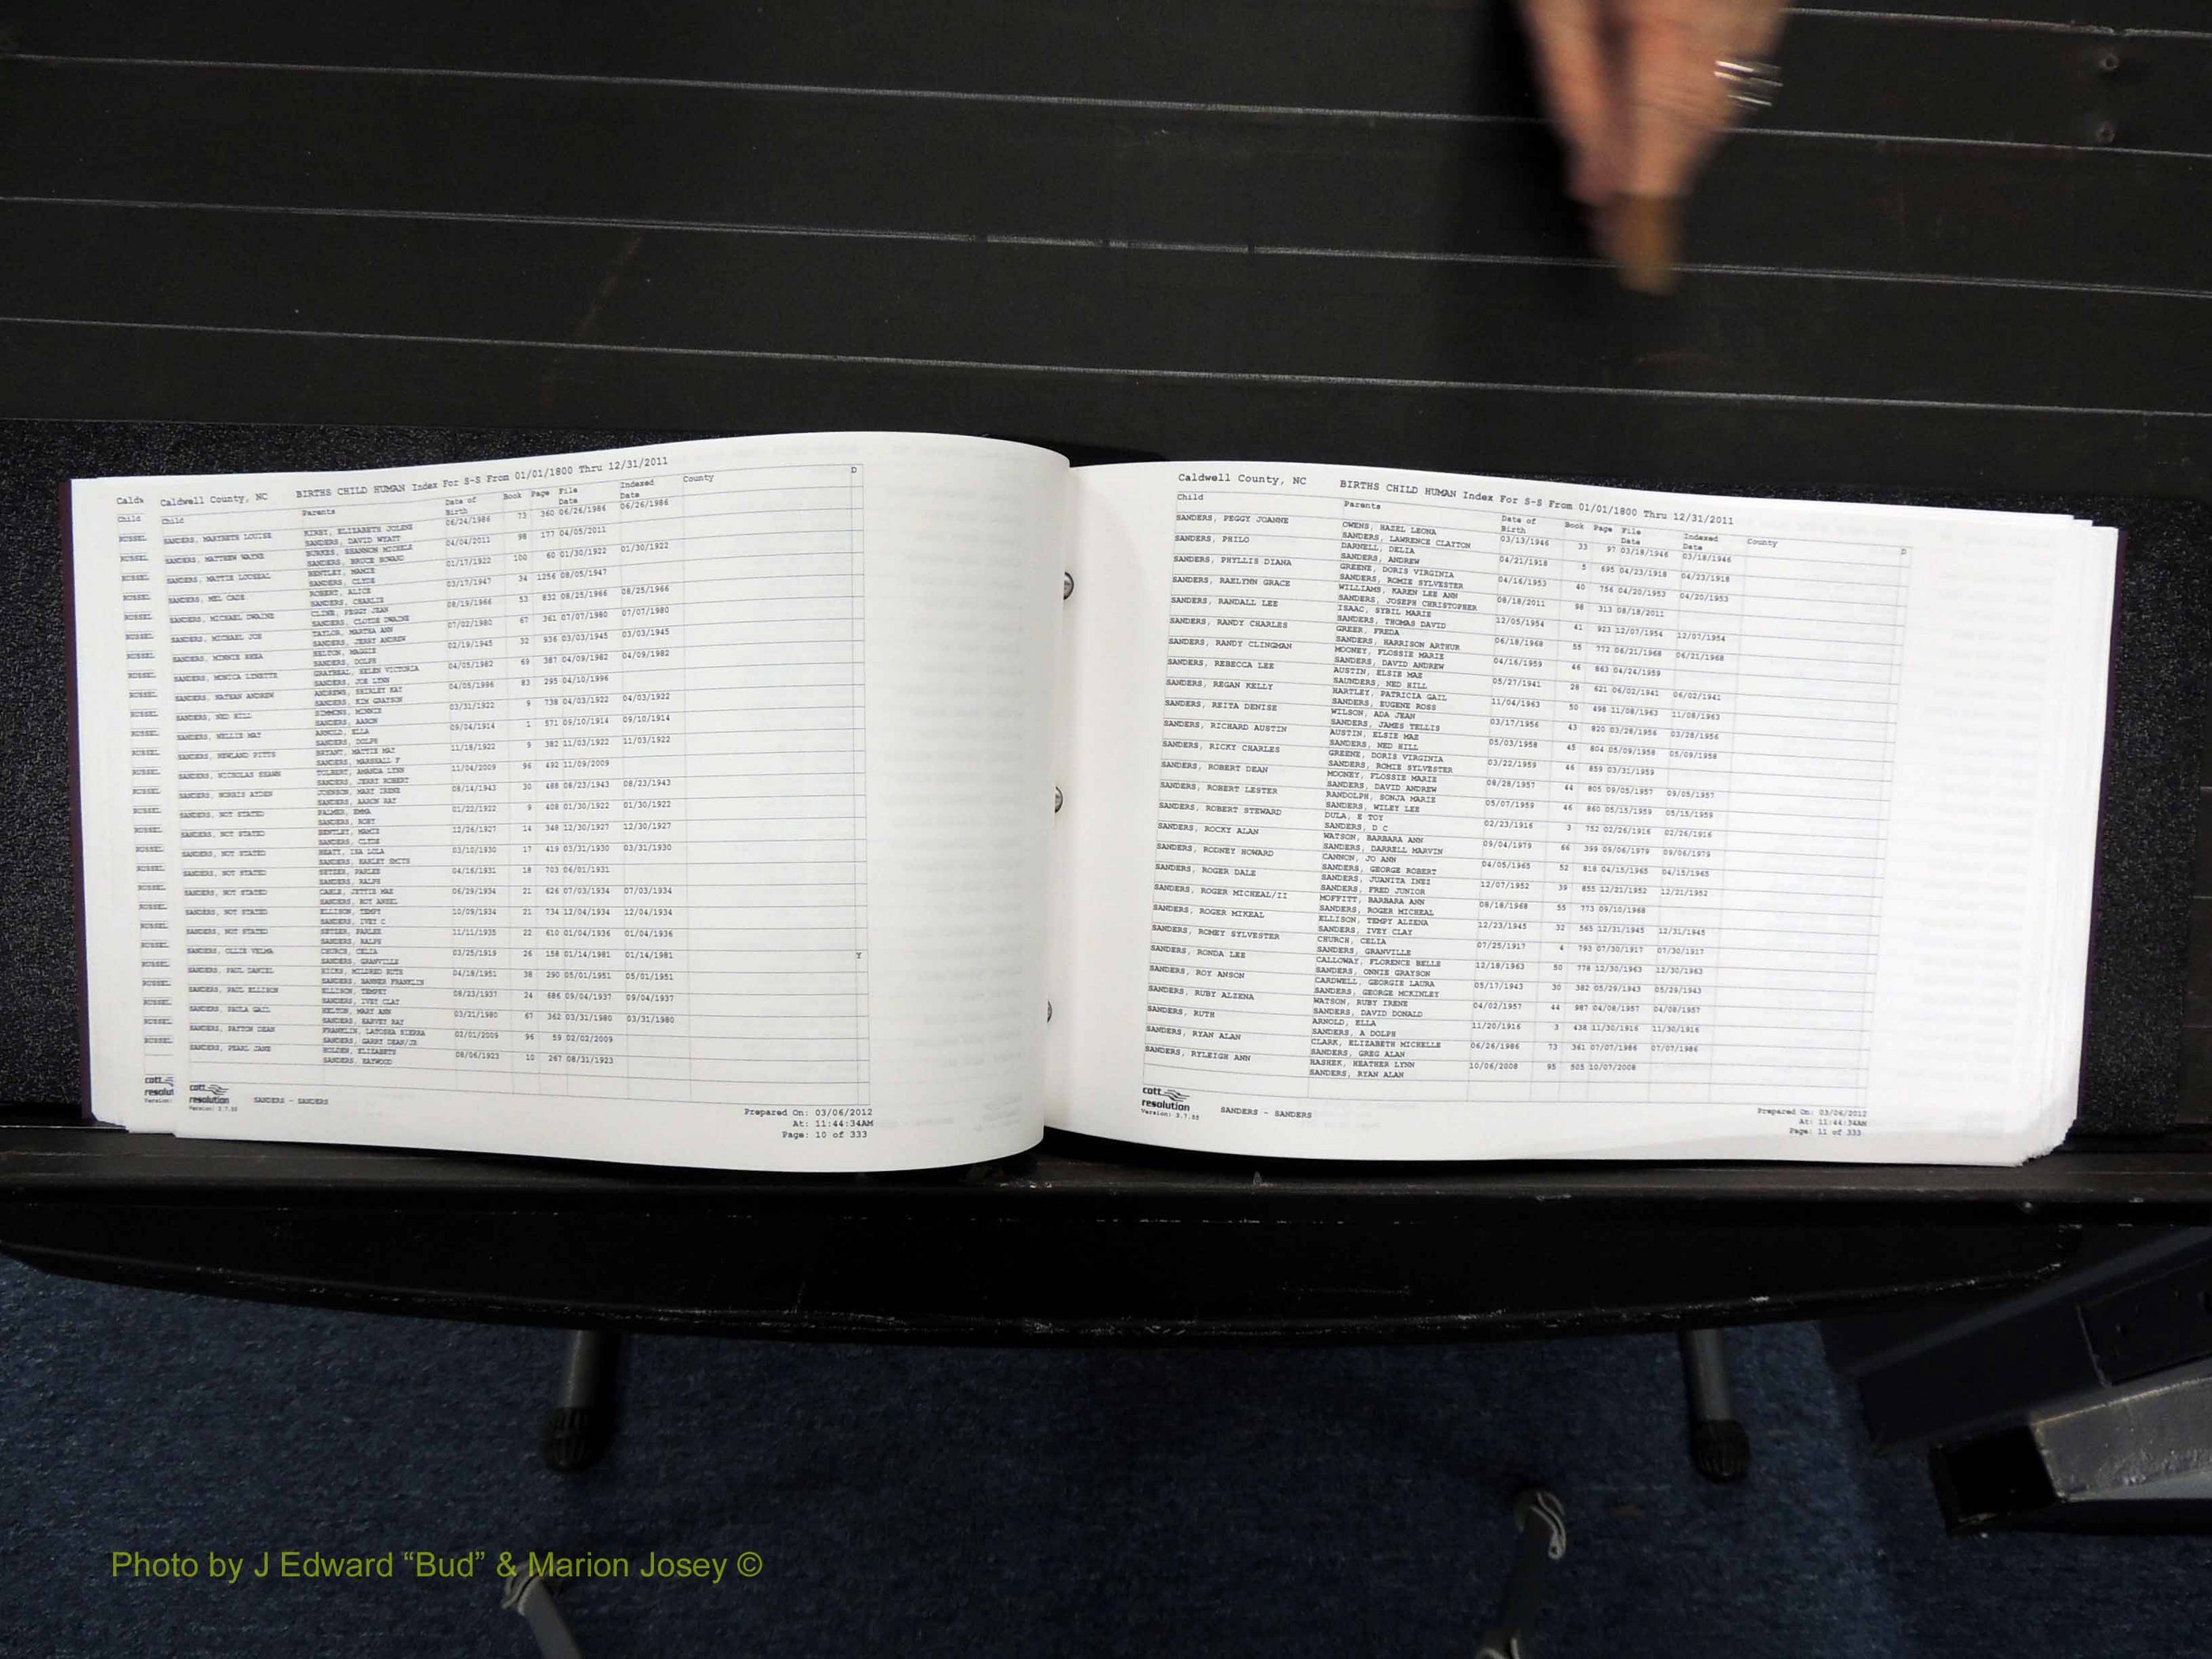 Calds
Child
RUSSEL
Caldwell County, NC BIRTHS CHILD HUMAN Index For S-S From 01/01/1800 Thru 12/31/2011
Child Parents Date of Birth Book Page File Date Indexed Date County D
SANDERS, MARYBETH LOUISE KIRBY, ELIZABETH JOLENE 06/24/1986 73 360 06/26/1986 06/26/1986
SANDERS, DAVID WYATT
SANDERS, MATTHEW WAYNE BURKES, SHANNON MICHELE 04/04/2011 98 177 04/05/2011
SANDERS, BRUCE HOWARD
SANDERS, MATTIE LOUSEAL BENTLEY, MAMIE 01/17/1922 100 60 01/30/1922 01/30/1922
SANDERS, CLYDE
SANDERS, MEL CADE ROBERT, ALICE 03/17/1947 34 1256 08/05/1947
SANDERS, CHARLIE
SANDERS, MICHAEL DWAINE CLINE, PEGGY JEAN 08/19/1966 53 832 08/25/1966 08/25/1966
SANDERS, CLOYDE DWAINE
SANDERS, MICHAEL JOE TAYLOR, MARTHA ANN 07/02/1980 67 361 07/07/1980 07/07/1980
SANDERS, JERRY ANDREW
SANDERS, MINNIE RHEA HELTON, MAGGIE 02/19/1945 32 936 03/03/1945 03/03/1945
SANDERS, DOLPH
SANDERS, MONICA LINETTE GRAYBEAL, HELEN VICTORIA 04/05/1982 69 387 04/09/1982 04/09/1982
SANDERS, JOE LYNN
SANDERS, NATHAN ANDREW ANDREWS, SHIRLEY KAY 04/05/1996 83 295 04/10/1996
SANDERS, KIM GRAYSON
SANDERS, NED HILL SIMMONS, MINNIE 03/31/1922 9 738 04/03/1922 04/03/1922
SANDERS, AARON
SANDERS, NELLIE MAY ARNOLD, ELLA 09/04/1914 1 571 09/10/1914 09/10/1914
SANDERS, DOLPH
SANDERS, NEWLAND PITTS BRYANT, MATTIE MAE 11/18/1922 9 382 11/03/1922 11/03/1922
SANDERS, MARSHALL F
SANDERS, NICHOLAS SHAWN TOLBERT, AMANDA LYNN 11/04/2009 96 492 11/09/2009
SANDERS, JERRY ROBERT
SANDERS, NORRIS AYDEN JOHNSON, MARY IRENE 08/14/1943 30 488 08/23/1943 08/23/1943
SANDERS, AARON RAY
SANDERS, NOT STATED PALMER, EMMA 01/22/1922 9 408 01/30/1922 01/30/1922
SANDERS, ROBY
SANDERS, NOT STATED BENTLEY, MAMIE 12/26/1927 14 348 12/30/1927 12/30/1927
SANDERS, CLYDE
SANDERS, NOT STATED BEATY, IRA LOLA 03/10/1930 17 419 03/31/1930 03/31/1930
SANDERS, HARLEY SMITH
SANDERS, NOT STATED SETZER, PARLEE 04/16/1931 18 703 06/01/1931
SANDERS, RALPH
SANDERS, NOT STATED CABLE, JETTIE MAE 06/29/1934 21 626 07/03/1934 07/03/1934
SANDERS, ROY ANSEL
SANDERS, NOT STATED ELLISON, TEMPY 10/09/1934 21 734 12/04/1934 12/04/1934
SANDERS, IVEY C
SANDERS, NOT STATED SETZER, PARLEE 11/11/1935 22 610 01/04/1936 01/04/1936
SANDERS, RALPH
SANDERS, OLLIE VELMA CHURCH, CELIA 03/25/1919 26 158 01/14/1981 01/14/1981 Y
SANDERS, GRANVILLE
SANDERS, PAUL DANIEL HICKS, MILDRED RUTH 04/18/1951 38 290 05/01/1951 05/01/1951
SANDERS, BANNER FRANKLIN
SANDERS, PAUL ELLISON ELLISON, TEMPEY 08/23/1937 24 686 09/04/1937 09/04/1937
SANDERS, IVEY CLAY
SANDERS, PAULA GAIL HELTON, MARY ANN 03/21/1980 67 362 03/31/1980 03/31/1980
SANDERS, HARVEY RAY
SANDERS, PAYTON DEAN FRANKLIN, LATOSHA SIERRA 02/01/2009 96 59 02/02/2009
SANDERS, GARRY DEAN/JR
SANDERS, PEARL JANE HOLDEN, ELIZABETH 08/06/1923 10 267 08/31/1923
SANDERS, HAYWOOD
cott
resolution
Version: 3.7.33
SANDERS - SANDERS
Prepared On: 03/06/2012
At: 11:44:34AM
Page: 10 of 333
Caldwell County, NC BIRTHS CHILD HUMAN Index For S-S From 01/01/1800 Thru 12/31/2011
Child Parents Date of Birth Book Page File Date Indexed Date County D
SANDERS, PEGGY JOANNE OWENS, HAZEL LEONA 03/13/1946 33 97 03/18/1946 03/18/1946
SANDERS, LAWRENCE CLAYTON
SANDERS, PHILO DARNELL, DELIA 04/21/1918 5 695 04/23/1918 04/23/1918
SANDERS, ANDREW
SANDERS, PHYLLIS DIANA GREENE, DORIS VIRGINIA 04/16/1953 40 756 04/20/1953 04/20/1953
SANDERS, ROMIE SYLVESTER
SANDERS, RAELYNN GRACE WILLIAMS, KAREN LEE ANN 08/18/2011 98 313 08/18/2011
SANDERS, JOSEPH CHRISTOPHER
SANDERS, RANDALL LEE ISAAC, SYBIL MARIE 12/05/1954 41 923 12/07/1954 12/07/1954
SANDERS, THOMAS DAVID
SANDERS, RANDY CHARLES GREER, FREDA 06/18/1968 55 772 06/21/1968 06/21/1968
SANDERS, HARRISON ARTHUR
SANDERS, RANDY CLINGMAN MOONEY, FLOSSIE MARIE 04/16/1959 46 863 04/24/1959
SANDERS, DAVID ANDREW
SANDERS, REBECCA LEE AUSTIN, ELSIE MAE 05/27/1941 28 621 06/02/1941 06/02/1941
SAUNDERS, NED HILL
SANDERS, REGAN KELLY HARTLEY, PATRICIA GAIL 11/04/1963 50 498 11/08/1963 11/08/1963
SANDERS, EUGENE ROSS
SANDERS, REITA DENISE WILSON, ADA JEAN 03/17/1956 43 820 03/28/1956 03/28/1956
SANDERS, JAMES TELLIS
SANDERS, RICHARD AUSTIN AUSTIN, ELSIE MAE 05/03/1958 45 804 05/09/1958 05/09/1958
SANDERS, NED HILL
SANDERS, RICKY CHARLES GREENE, DORIS VIRGINIA 03/22/1959 46 859 03/31/1959
SANDERS, ROMIE SYLVESTER
SANDERS, ROBERT DEAN MOONEY, FLOSSIE MARIE 08/28/1957 44 805 09/05/1957 09/05/1957
SANDERS, DAVID ANDREW
SANDERS, ROBERT LESTER RANDOLPH, SONJA MARIE 05/07/1959 46 860 05/15/1959 05/15/1959
SANDERS, WILEY LEE
SANDERS, ROBERT STEWARD DULA, E TOY 02/23/1916 3 752 02/26/1916 02/26/1916
SANDERS, D C
SANDERS, ROCKY ALAN WATSON, BARBARA ANN 09/04/1979 66 399 09/06/1979 09/06/1979
SANDERS, DARRELL MARVIN
SANDERS, RODNEY HOWARD CANNON, JO ANN 04/05/1965 52 818 04/15/1965 04/15/1965
SANDERS, GEORGE ROBERT
SANDERS, ROGER DALE SANDERS, JUANITA INEZ 12/07/1952 39 855 12/21/1952 12/21/1952
SANDERS, FRED JUNIOR
SANDERS, ROGER MICHEAL/II MOFFITT, BARBARA ANN 08/18/1968 55 773 09/10/1968
SANDERS, ROGER MICHEAL
SANDERS, ROGER MIKEAL ELLISON, TEMPY ALZENA 12/23/1945 32 565 12/31/1945 12/31/1945
SANDERS, IVEY CLAY
SANDERS, ROMEY SYLVESTER CHURCH, CELIA 07/25/1917 4 793 07/30/1917 07/30/1917
SANDERS, GRANVILLE
SANDERS, RONDA LEE CALLOWAY, FLORENCE BELLE 12/18/1963 50 778 12/30/1963 12/30/1963
SANDERS, ONNIE GRAYSON
SANDERS, ROY ANSON CARDWELL, GEORGIE LAURA 05/17/1943 30 382 05/29/1943 05/29/1943
SANDERS, GEORGE MCKINLEY
SANDERS, RUBY ALZENA WATSON, RUBY IRENE 04/02/1957 44 987 04/08/1957 04/08/1957
SANDERS, DAVID DONALD
SANDERS, RUTH ARNOLD, ELLA 11/20/1916 3 438 11/30/1916 11/30/1916
SANDERS, A DOLPH
SANDERS, RYAN ALAN CLARK, ELIZABETH MICHELLE 06/26/1986 73 361 07/07/1986 07/07/1986
SANDERS, GREG ALAN
SANDERS, RYLEIGH ANN HASHEK, HEATHER LYNN 10/06/2008 95 505 10/07/2008
SANDERS, RYAN ALAN
cott
resolution
Version: 3.7.33
SANDERS - SANDERS
Prepared On: 03/06/2012
At: 11:44:34AM
Page: 11 of 333
Photo by J Edward “Bud” & Marion Josey ©